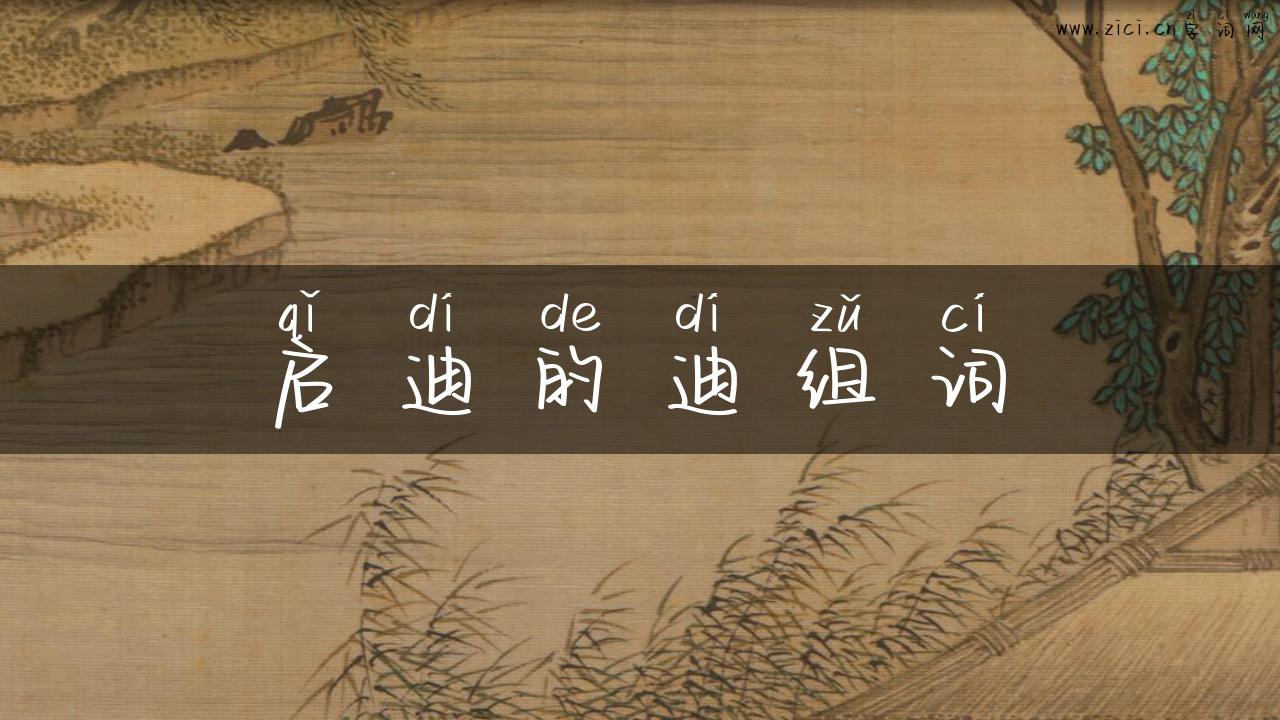 zì cí wǎng
www.zici.cn字词网
qǐ dí de dí zǔ cí
启迪的迪组词